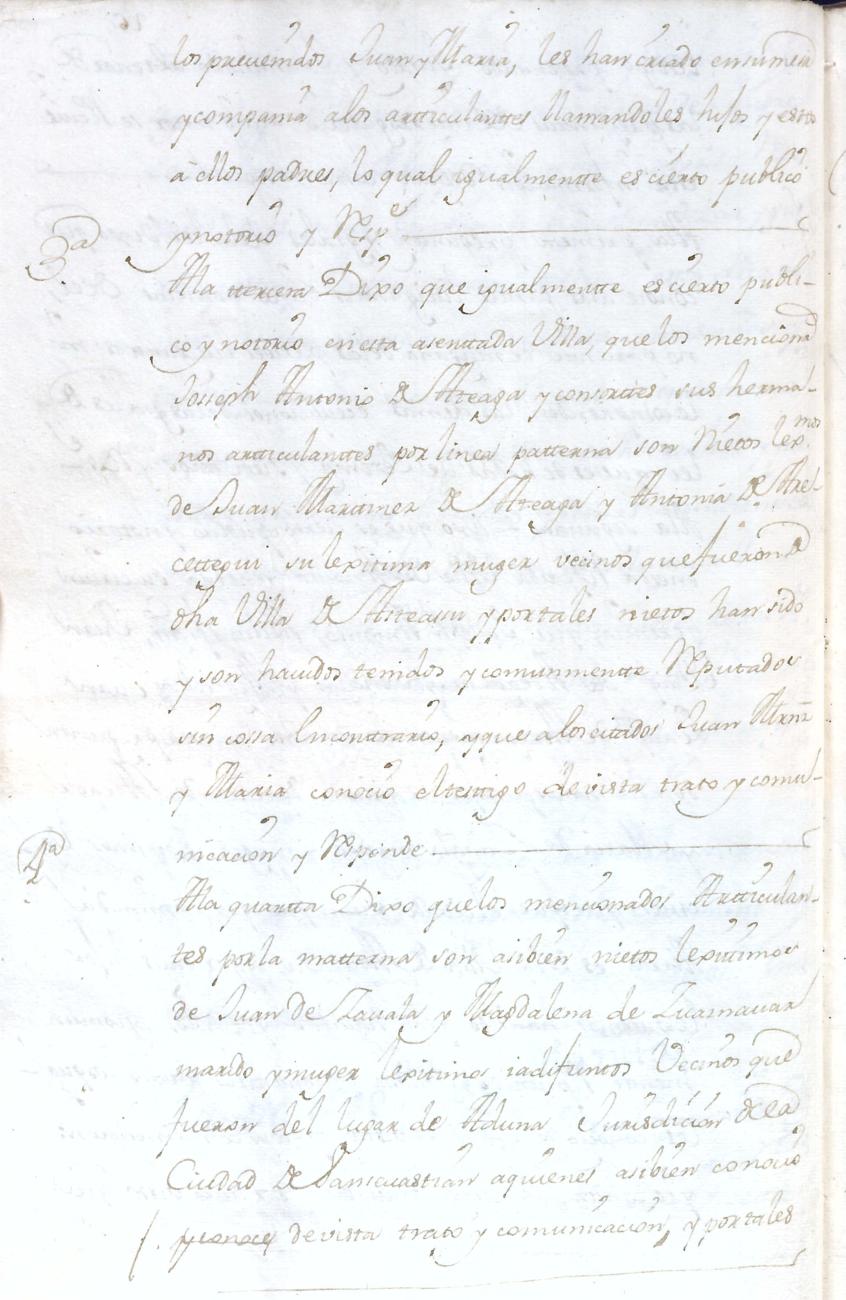 los prevenidos Juan y Maria, les han criado en su mesa
y compania a los artticulanttes llamandoles hijos y estos
a ellos padres, lo qual igualmentte es cierto publico
y nottorio y Resp.e
3.a
A la ttercera Dixo que igualmentte es cierto publi-
co y nottorio en esta asenttada Villa, que los mencionad.
Joseph Antonio de Atteaga y consorttes sus herma-
nos artticulanttes por linea patterna son Nietos lex.mos
de Juan Marttinez de Atteaga y Antonia de Are-
cettegui su lexitima muger vecinos que fueron de
dha Villa de Asteasu y por tales nietos han sido
y son havidos tenidos y comunmentte Reputados
sin cossa En conttrario, y que a los citados Juan Mrnz
y Maria conocio el testigo de vista trato y comu-
nicacion y Responde
4.a
A la quartta Dixo que los mencionados Artticulan-
tes por la matterna son asibien nietos lexittimos
de Juan de Zavala y Magdalena de
marido y muger lexitimos ia difuntos Vecinos que
fueron del lugar de Aduna Jurisdicion de la
Ciudad de San Sevastian a quienes asibien conocio
y conoce de vista trato y comunicacion, y por tales